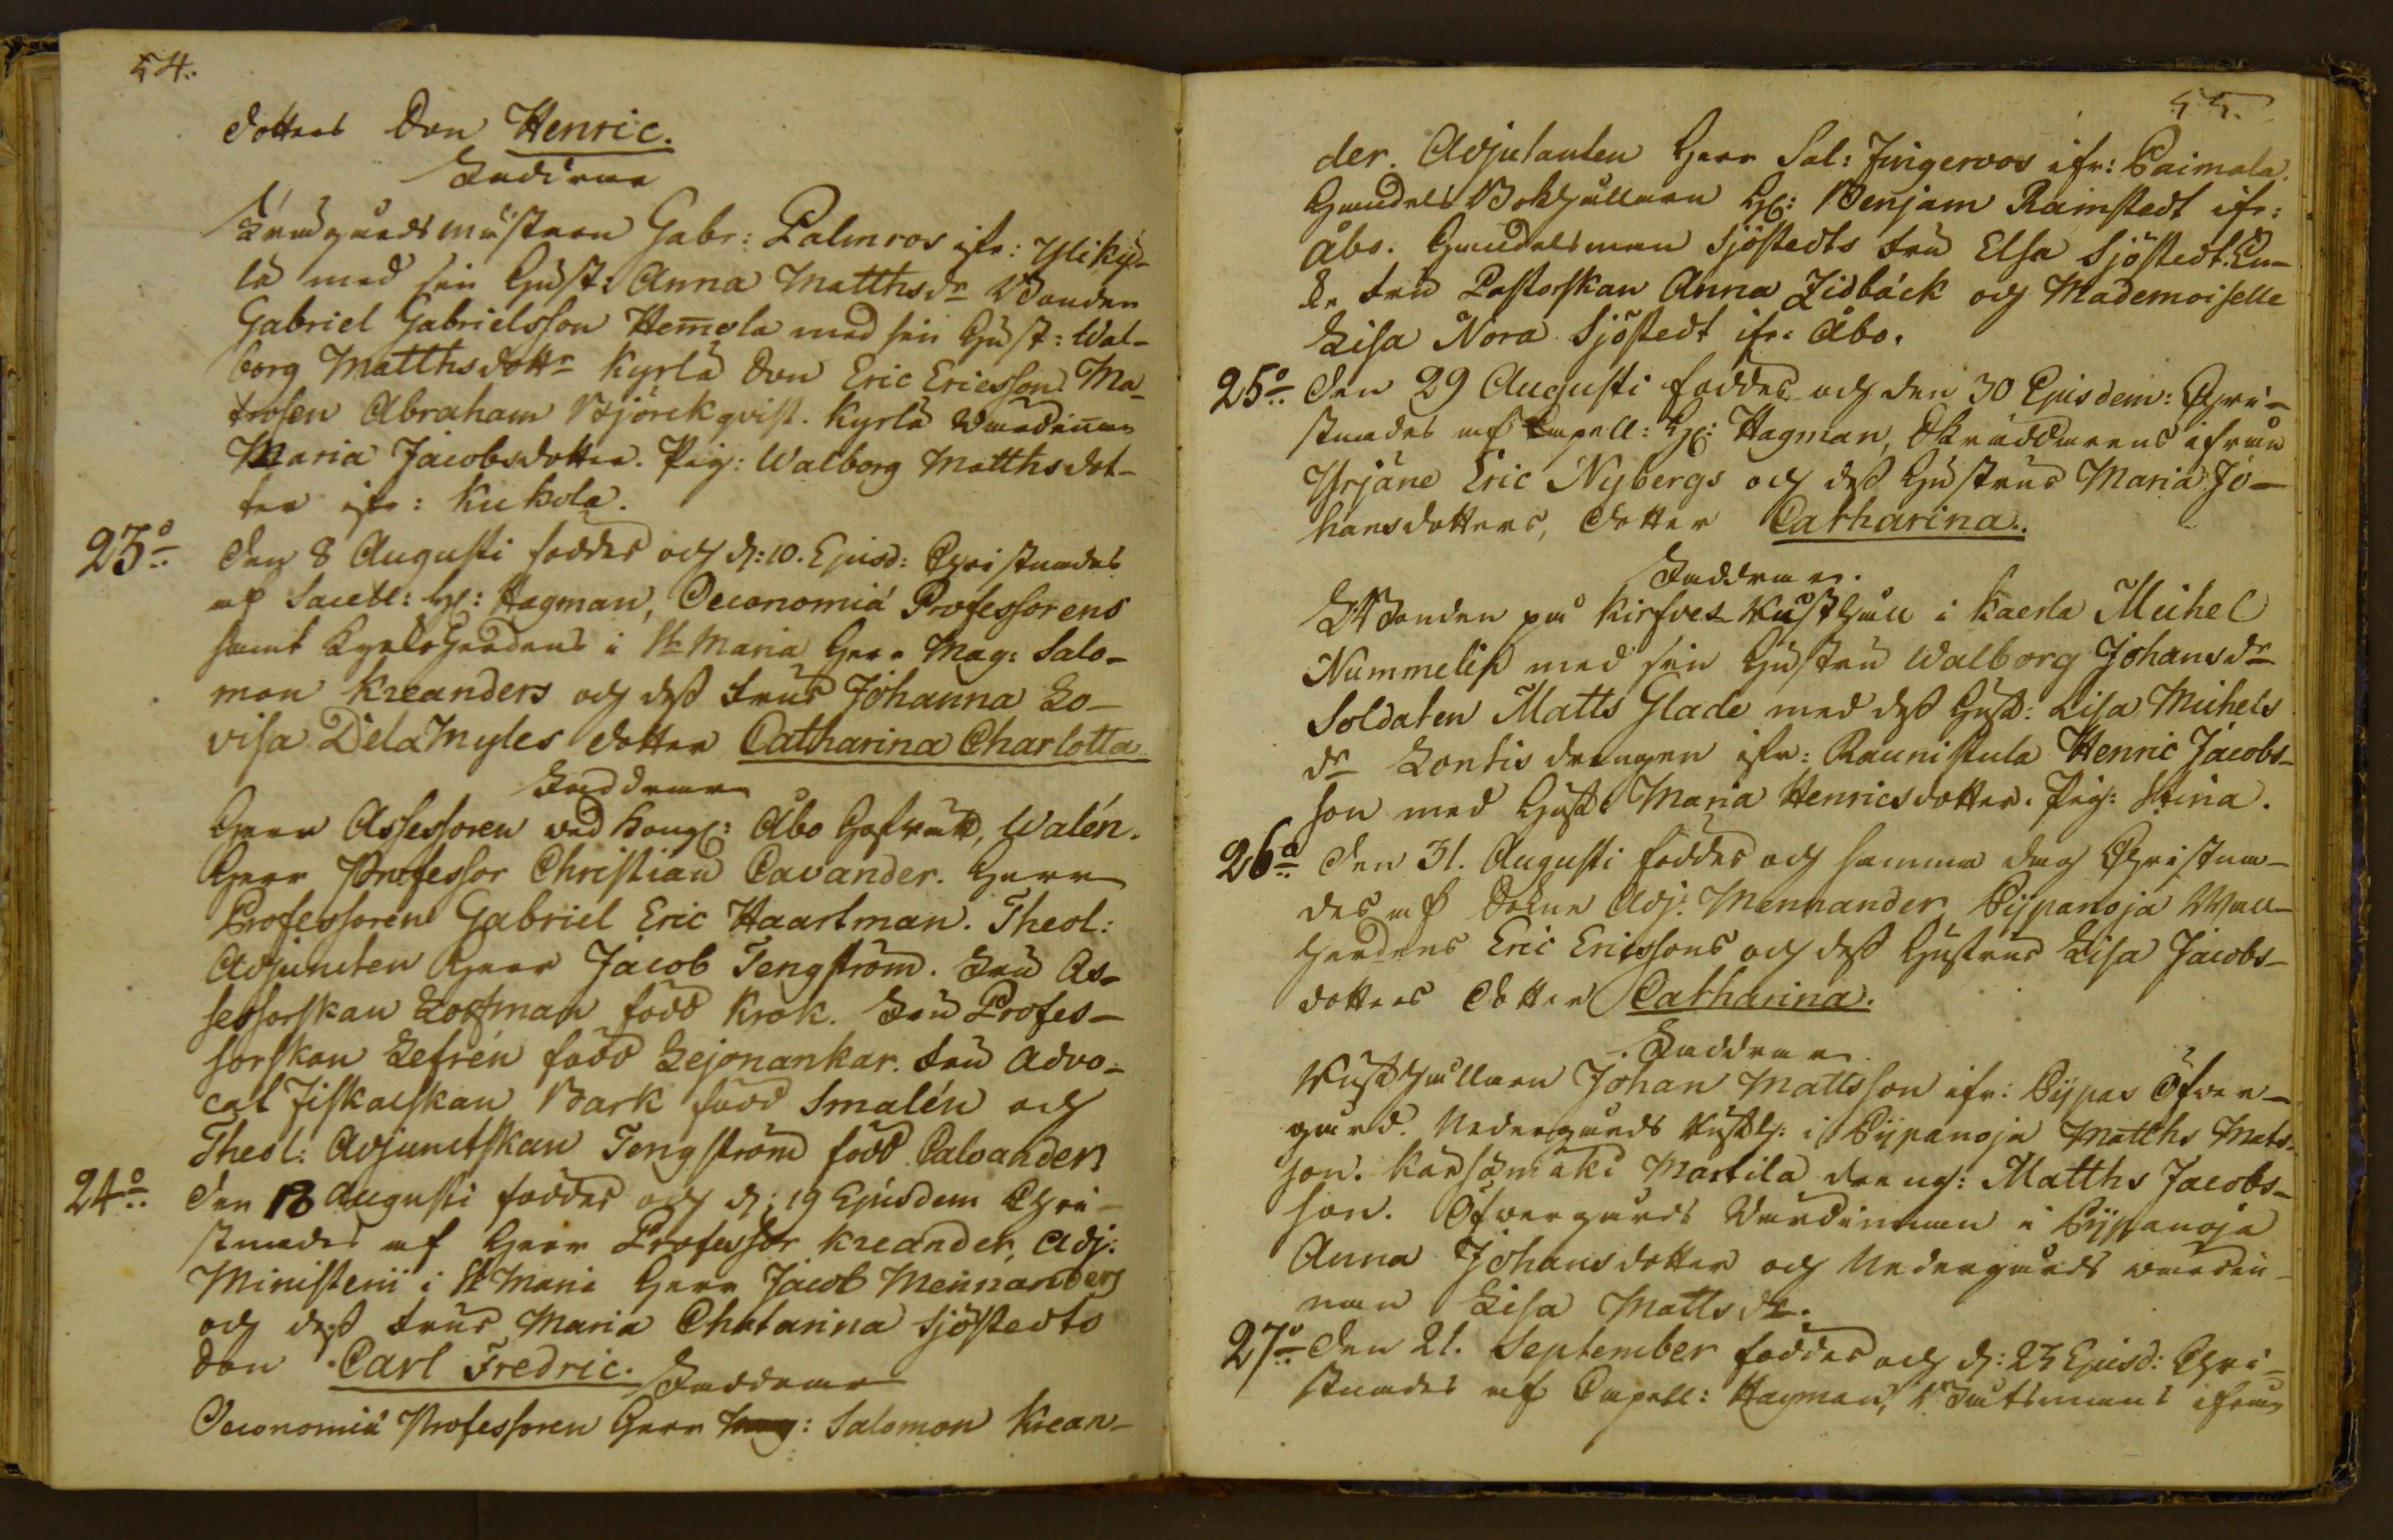 54.
dotters Son Henric.
Faddrar
Trägårdsmästaren Gabr: Palmros ifr: Ylikÿ-
lä med sin Hust: Anna Matthsdr Bonden
Gabriel Gabrielsson Hemola med sin Hust: Wal-
borg Matthsdottr Kyrlä Son Eric Ericsson. Ma-
trosen Abraham Björckqvist. Kyrlä Wärdinnan
Maria Jacobsdotter. Pig: Walborg Matthsdot-
ter ifr: Kukola.
23o. Den 8 Augusti föddes och d: 10. Ejusd: Christnades
af Sacell: H: Hagman, Oeconomiæ Professorens
samt Kyrkoherdens i St Maria Herr Mag: Salo-
mon Kreanders och dess Frus Johanna Lo-
visa DelaMyles dotter Catharina Charlotta
Faddrar
Herr Assessoren ved Kongl: Åbo Hofrätt, Walén.
Herr Professor Christian Cavander. Herr
Professoren Gabriel Eric Haartman. Theol:
Adjuncten Herr Jacob Tengström. Fru As-
sessorskan född Krok. Fru Profes-
sorskan Lefrén född Lejonankar. Fru Advo-
cat Fiskalskan Bark född Smalén och
Theol: Adjunctskan Tengström född Cavander
24o. Den 18 Augusti föddes och d: 19 Ejusdem Chri-
stnades af Herr Professor Kreander, Adj:
Ministerii i St Marie Herr Jacob Mennanders
och dess Frus Maria Chatarina Sjöstedts
Son Carl Fredric. Faddrar
Oeconomiæ Professoren Herr Mag: Salomon Krean-
55.
der. Adjutanten Herr Sal: Ingervos ifr: Paimala.
Handels Bokhållaren H: Benjam Ramstedt ifr:
Åbo. Handelsman Sjöstedts Fru Elsa Sjöstedt. En-
ke Fru Pastorskan Anna Lidbäck och Mademoiselle
Lisa Nora Sjöstedt ifr: Åbo.
25o. Den 29 Augusti föddes och den 30 Ejusdem: Chri-
stnades af Capell: H: Hagman, Skräddarens ifrån
Yrjäne Eric Nybergs och dess Hustrus Maria Jo-
hansdotters, dotter Catharina.
Faddrar.
Bonden på Kirfves Rusthåll i Kaerla Michel
Nummelin med sin Hustru Walborg Johansdr
Soldaten Matts Glade med dess Hust: Lisa Michels
dr Lontis drängen ifr: Raunistula Henric Jacobs-
son med Hust: Maria Henricsdotter. Pig: Stina.
26o. Den 31. Augusti föddes och samma dag Christna-
des af Adj: Mennander Pijpanoja Wall-
herdens Eric Ericssons och dess Hustrus Lisa Jacobs-
dotters dotter Catharina.
Faddrar.
Rusthållaren Johan Mattsson ifr: Pijpas Öfver-
gård. Nedergårds Rusth: i Pijpanoja Matths Mats-
son. Karsämäki Martila dräng: Matths Jacobs-
son. Öfvergårds Wärdinnan i Pijpanoja
Anna Johansdotter och Nedergårds wärdin-
nan Lisa Mattsdr.
27o. Den 21. September föddes och d: 23 Ejusd: Chri-
stnades af Capell: Hagman, Båtsmans ifrån